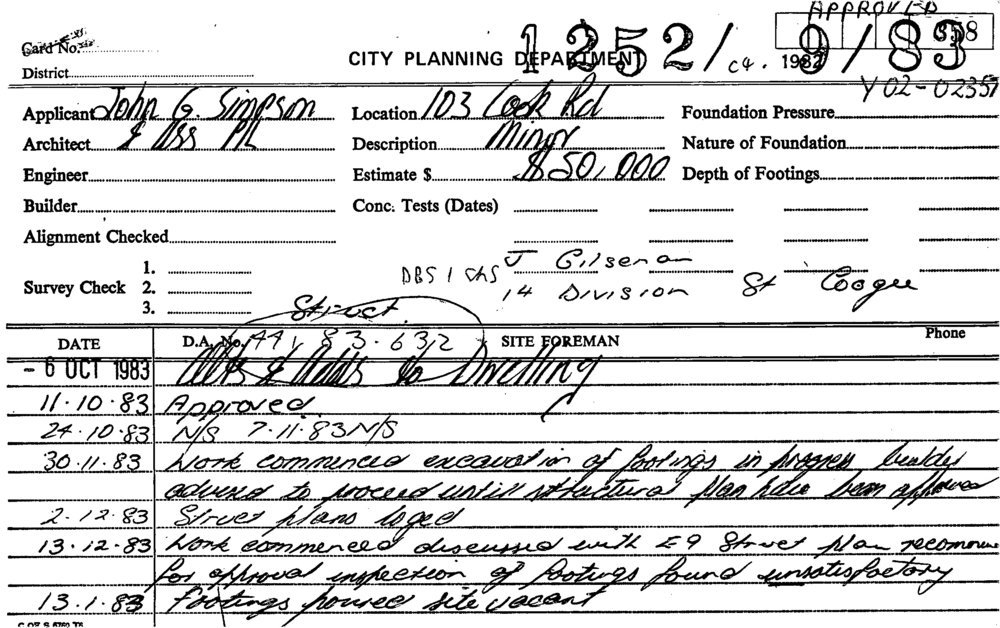 APPROVED
Card No.
1252/ 9/83
CITY PLANNING DEPARTMENT
C4. 1982
58
District
Y02-02357
Applicant John G. Simpson
Location 103 Cook Rd
Foundation Pressure
Architect & Ass PL
Description Minor
Nature of Foundation
Engineer
Estimate $ $50,000
Depth of Footings
Builder
Conc. Tests (Dates)
Alignment Checked
Survey Check
1.
2.
3.
J Gilsenan
14 Division St Coogee
Struct
DATE
D.A. No. 83-632
SITE FOREMAN
Phone
- 6 OCT 1983 Alts & Adds to Dwelling
11.10.83 Approved.
24.10.83 N/S 7.11.83 N/S
30.11.83 Work commenced excavation of footings in progress builder
advised to proceed until structural plan have been approved
2.12.83 Struct plans loged
13.12.83 Work commenced discussed with E9 Struct plan recommene
for approval inspection of footings found unsatisfactory
13.1.83 Footings poured site vacant